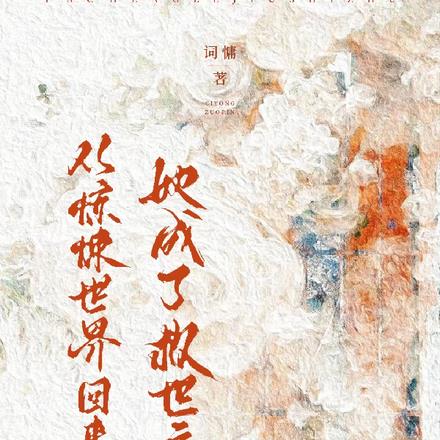 词慵
著
CIYONG
ZUOPIN
从惊悚世界回
她成了救世